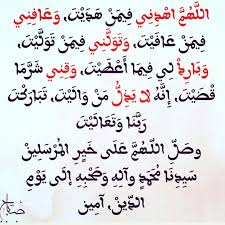 اللَّهُمَّ اهْدِنِي فِيمَنْ هَدَيْتَ، وَعَافِنِي
فِيمَنْ عَافَيْتَ، وَتَوَلَّنِي فِيمَنْ تَوَلَّيْتَ،
وَبَارِكْ لِي فِيمَا أَعْطَيْتَ، وَقِنِي شَرَّمَا
قَضَيْتَ، إِنَّهُ لَا يَذِلُّ مَنْ وَالَيْتَ، تَبَارَكْتَ
رَبَّنَا وَتَعَالَيْتَ
وَصَلِّ اللَّهُمَّ عَلَى خَيْرِ الْمُرْسَلِينَ
سَيِّدِنَا مُحَمَّدٍ وَآلِهِ وَصَحْبِهِ إِلَى يَوْمِ
الدِّينِ، آمِين